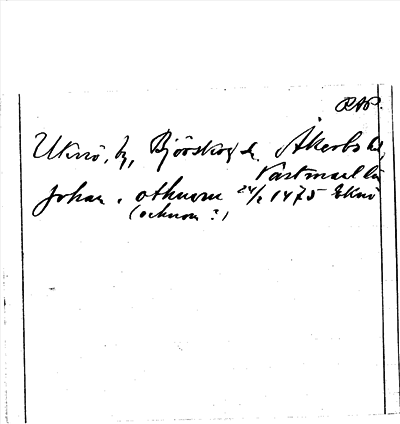 RAP.
Uknö, by, Björskog sn. Åkerbo hd,
Västmanl. län
Johan . othnom 24/2 1475 Eknö
(ocknom ?)